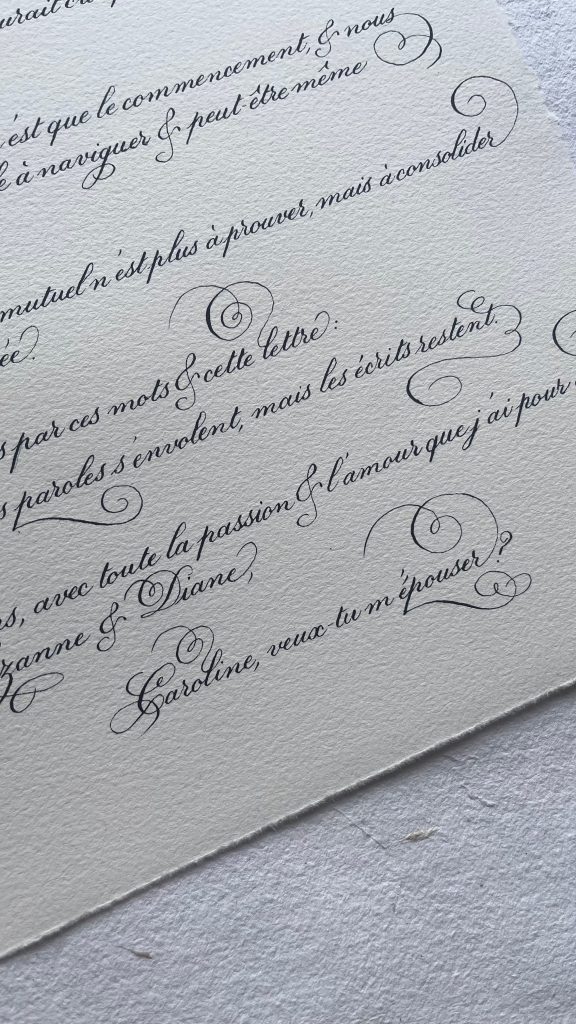 est que le commencement, & nous
à naviguer & peut être même
mutuel n'est plus à prouver, mais à consolider
ée.
par ces mots & cette lettre :
paroles s'envolent, mais les écrits restent.
, avec toute la passion & l'amour que j'ai pour
zanne & Diane,
Caroline, veux-tu m'épouser ?